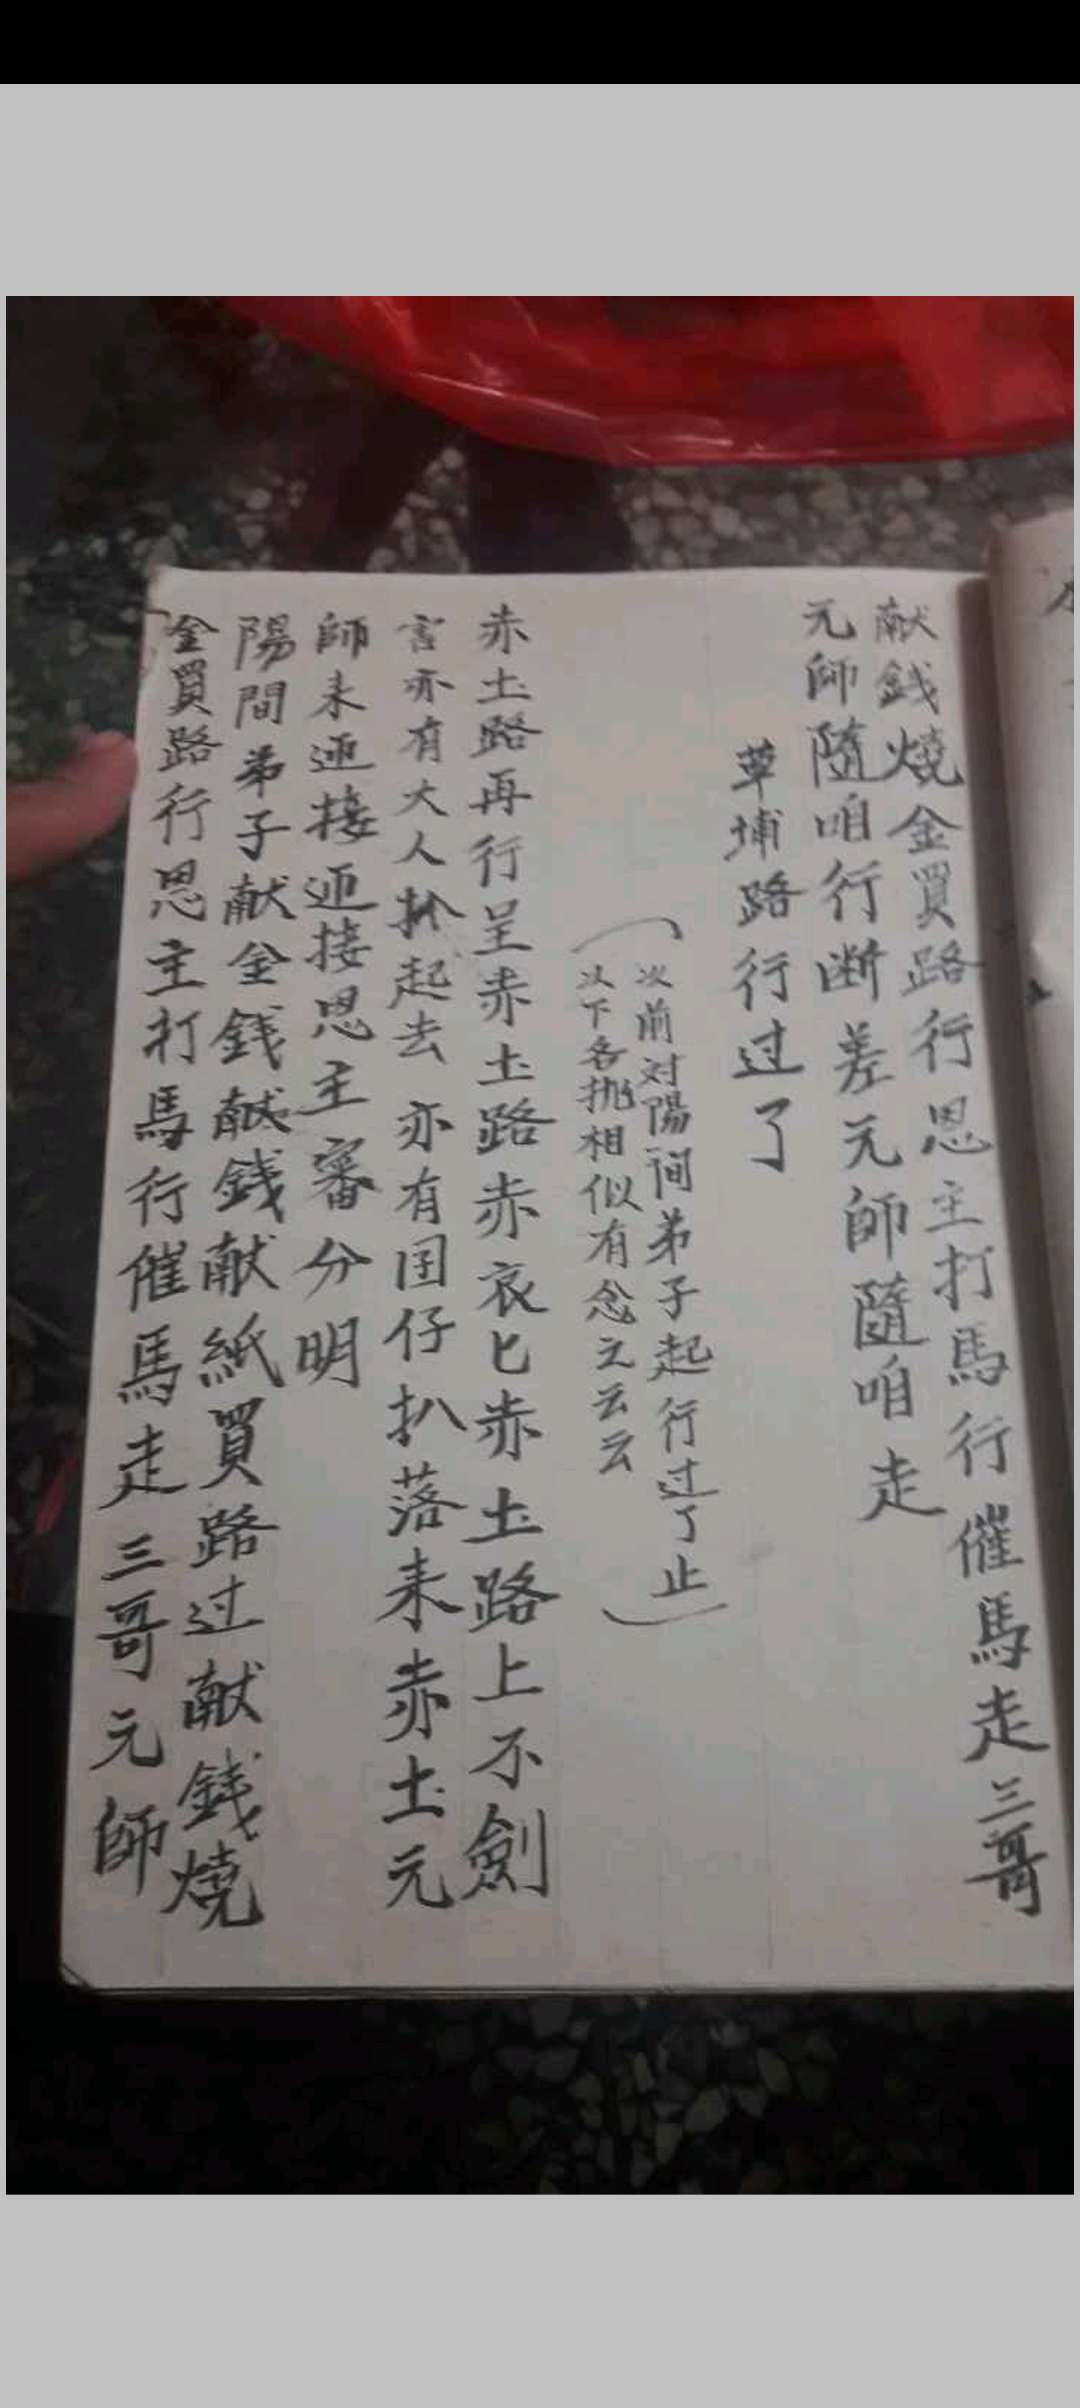 献錢燒金買路行恩主打馬行催馬走三哥
元師隨咱行断差元師隨咱走
草埔路行过了
（次前对陽間弟子起行过了止
以下各挑相似有念之云云）
赤土路再行呈赤土路赤哀匕赤土路上不劍
害亦有大人扒起去 亦有囝仔扒落来赤土元
師来迎接迎接恩主審分明
陽間弟子献金錢献錢献紙買路过献錢燒
金買路行恩主打馬行催馬走三哥元師